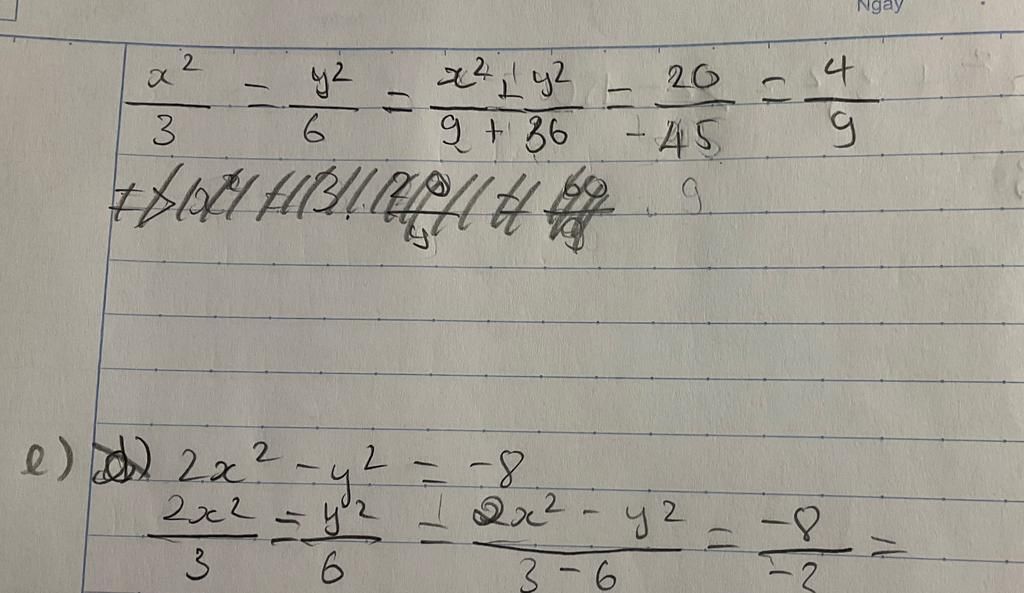 Ngày
x²/3 = y²/6 = x² + y²/9 + 36 = 20/-45 = 4/9
9
e) d) 2x² - y² = -8
2x²/3 = y²/6 = 2x² - y²/3 - 6 = -8/-2 =